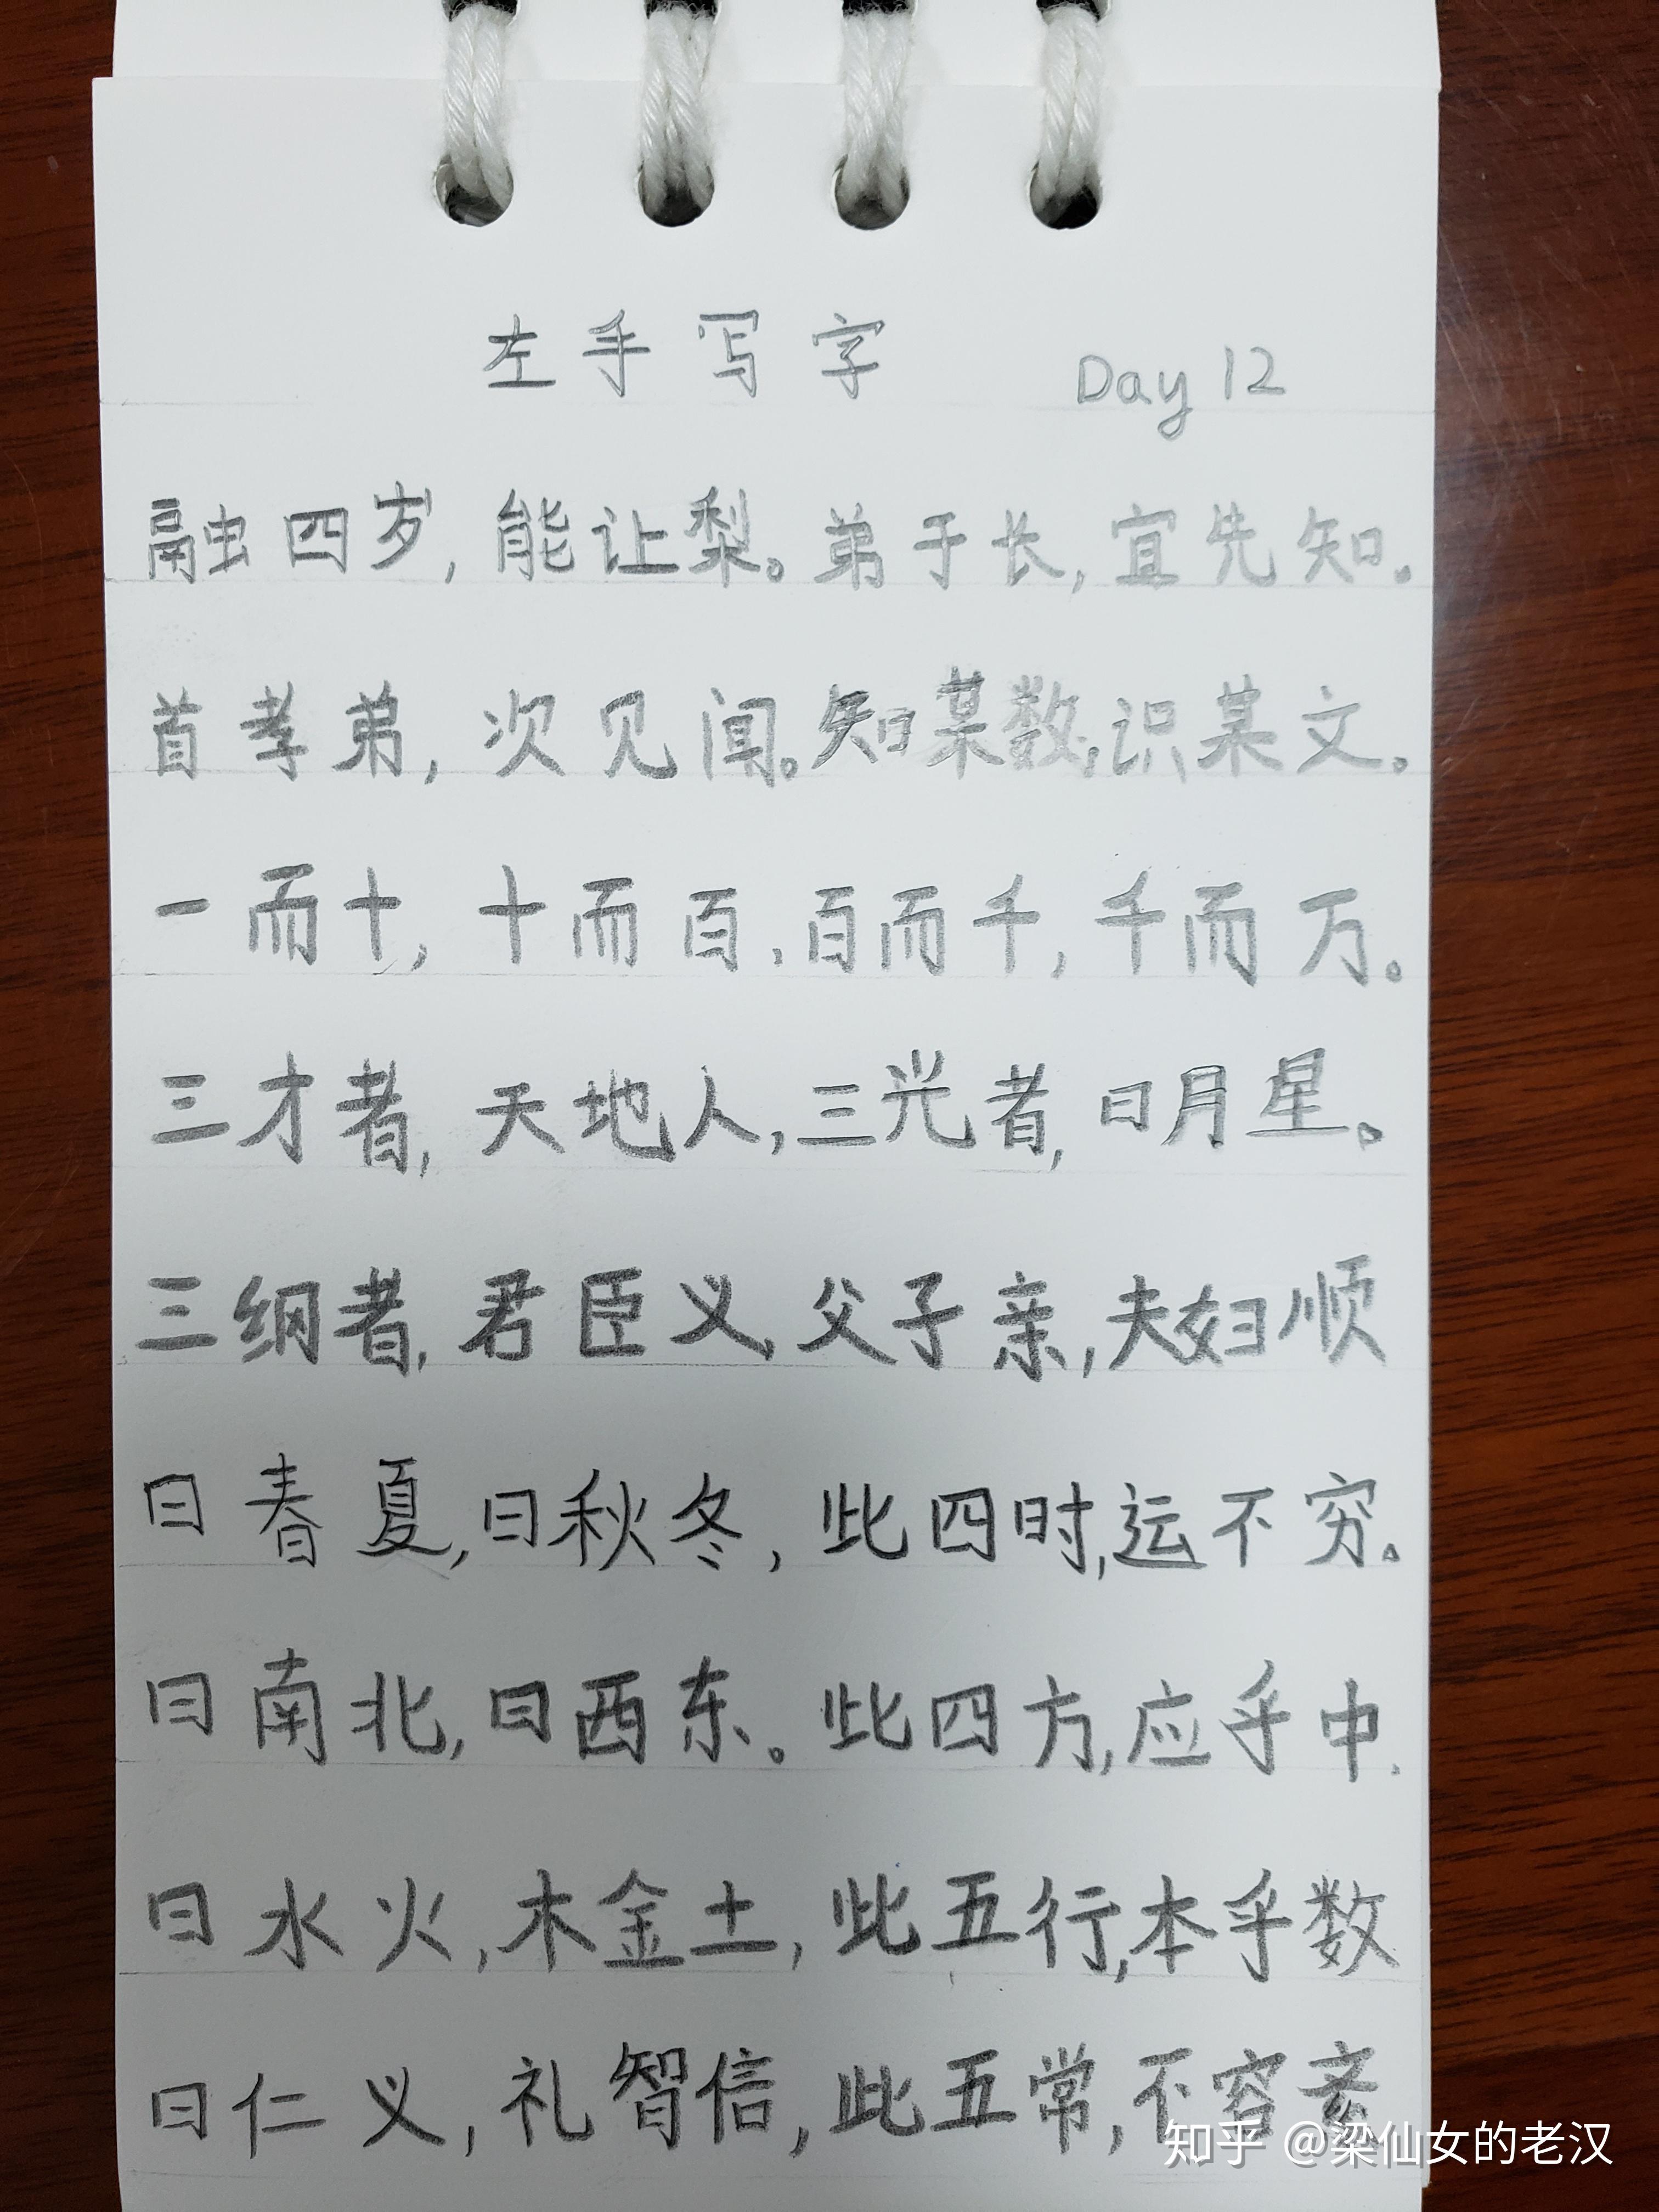 左手写字 Day 12
融四岁,能让梨。弟于长,宜先知。
首孝弟,次见闻。知某数,识某文。
一而十,十而百,百而千,千而万。
三才者,天地人,三光者,日月星。
三纲者,君臣义,父子亲,夫妇顺
曰春夏,曰秋冬,此四时,运不穷。
曰南北,曰西东。此四方,应乎中.
曰水火,木金土,此五行,本乎数
曰仁义,礼智信,此五常,不容紊
知乎 @梁仙女的老汉